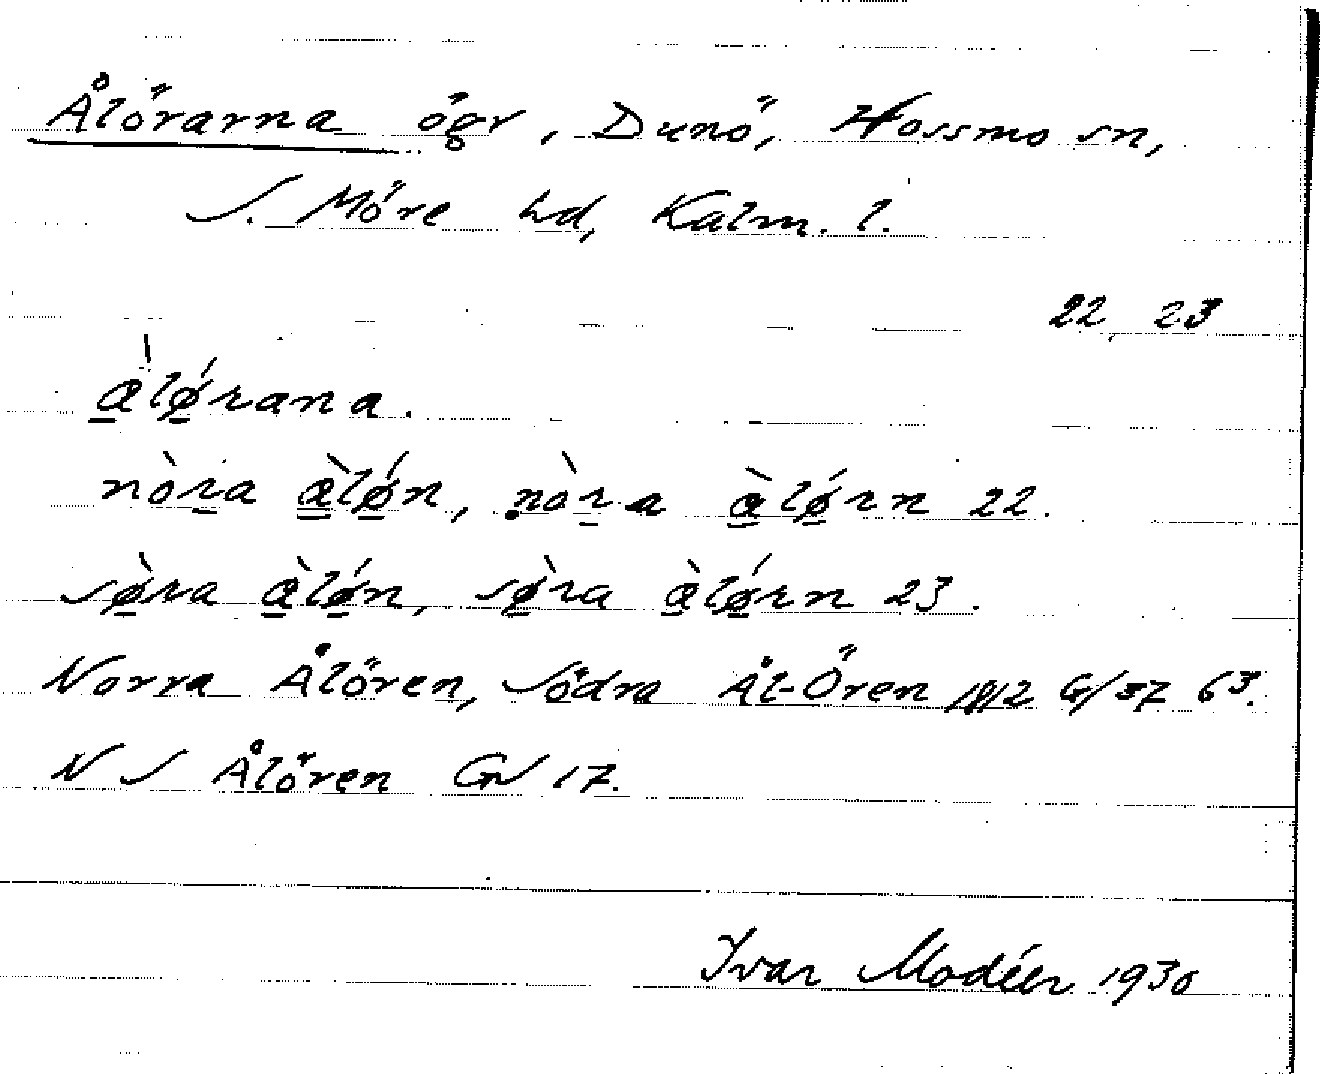 Ålörarna ögr, Dunö, Hossmo sn,
S. Möre hd, Kalm. l.
22, 23
à̲lǿ̲rana.
nòr̲a à̲lǿ̲n, nòr̲a à̲lǿ̲rn 22.
sø̲̀ra à̲lǿ̲n, sø̲̀ra à̲lǿ̲rn 23.
Norra Ålören, Södra Ål-Ören 1812 G/37 63.
N S Ålören GV 17.
Ivar Modéer 1930